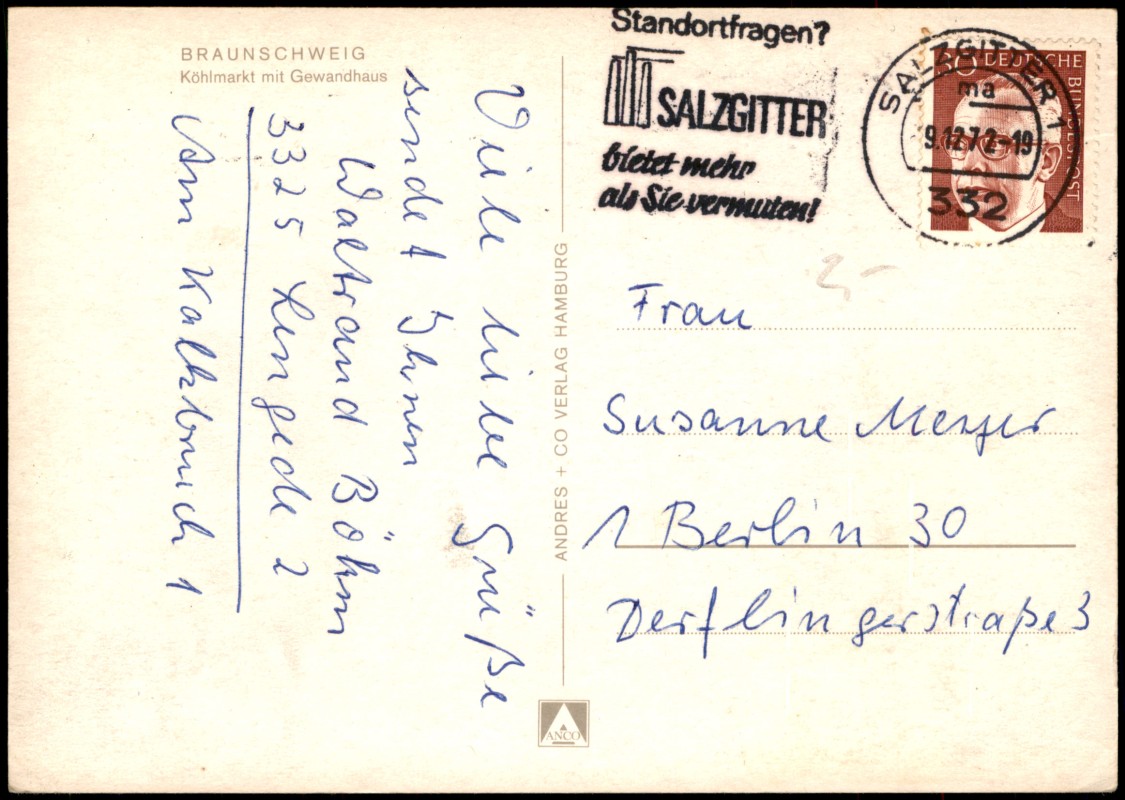 BRAUNSCHWEIG
Köhlmarkt mit Gewandhaus
Viele liebe Grüße
sendet Ihnen
Waltraud Böhm
3325 Lengede 2
Am Kalkbruch 1
ANDRES + CO VERLAG HAMBURG
ANCO
Standortfragen?
SALZGITTER
bietet mehr
als Sie vermuten!
SALZGITTER 1
ma
9.12.72-19
332
30 DEUTSCHE BUNDESPOST
Frau
Susanne Menzer
1 Berlin 30
Derflingerstraße 3